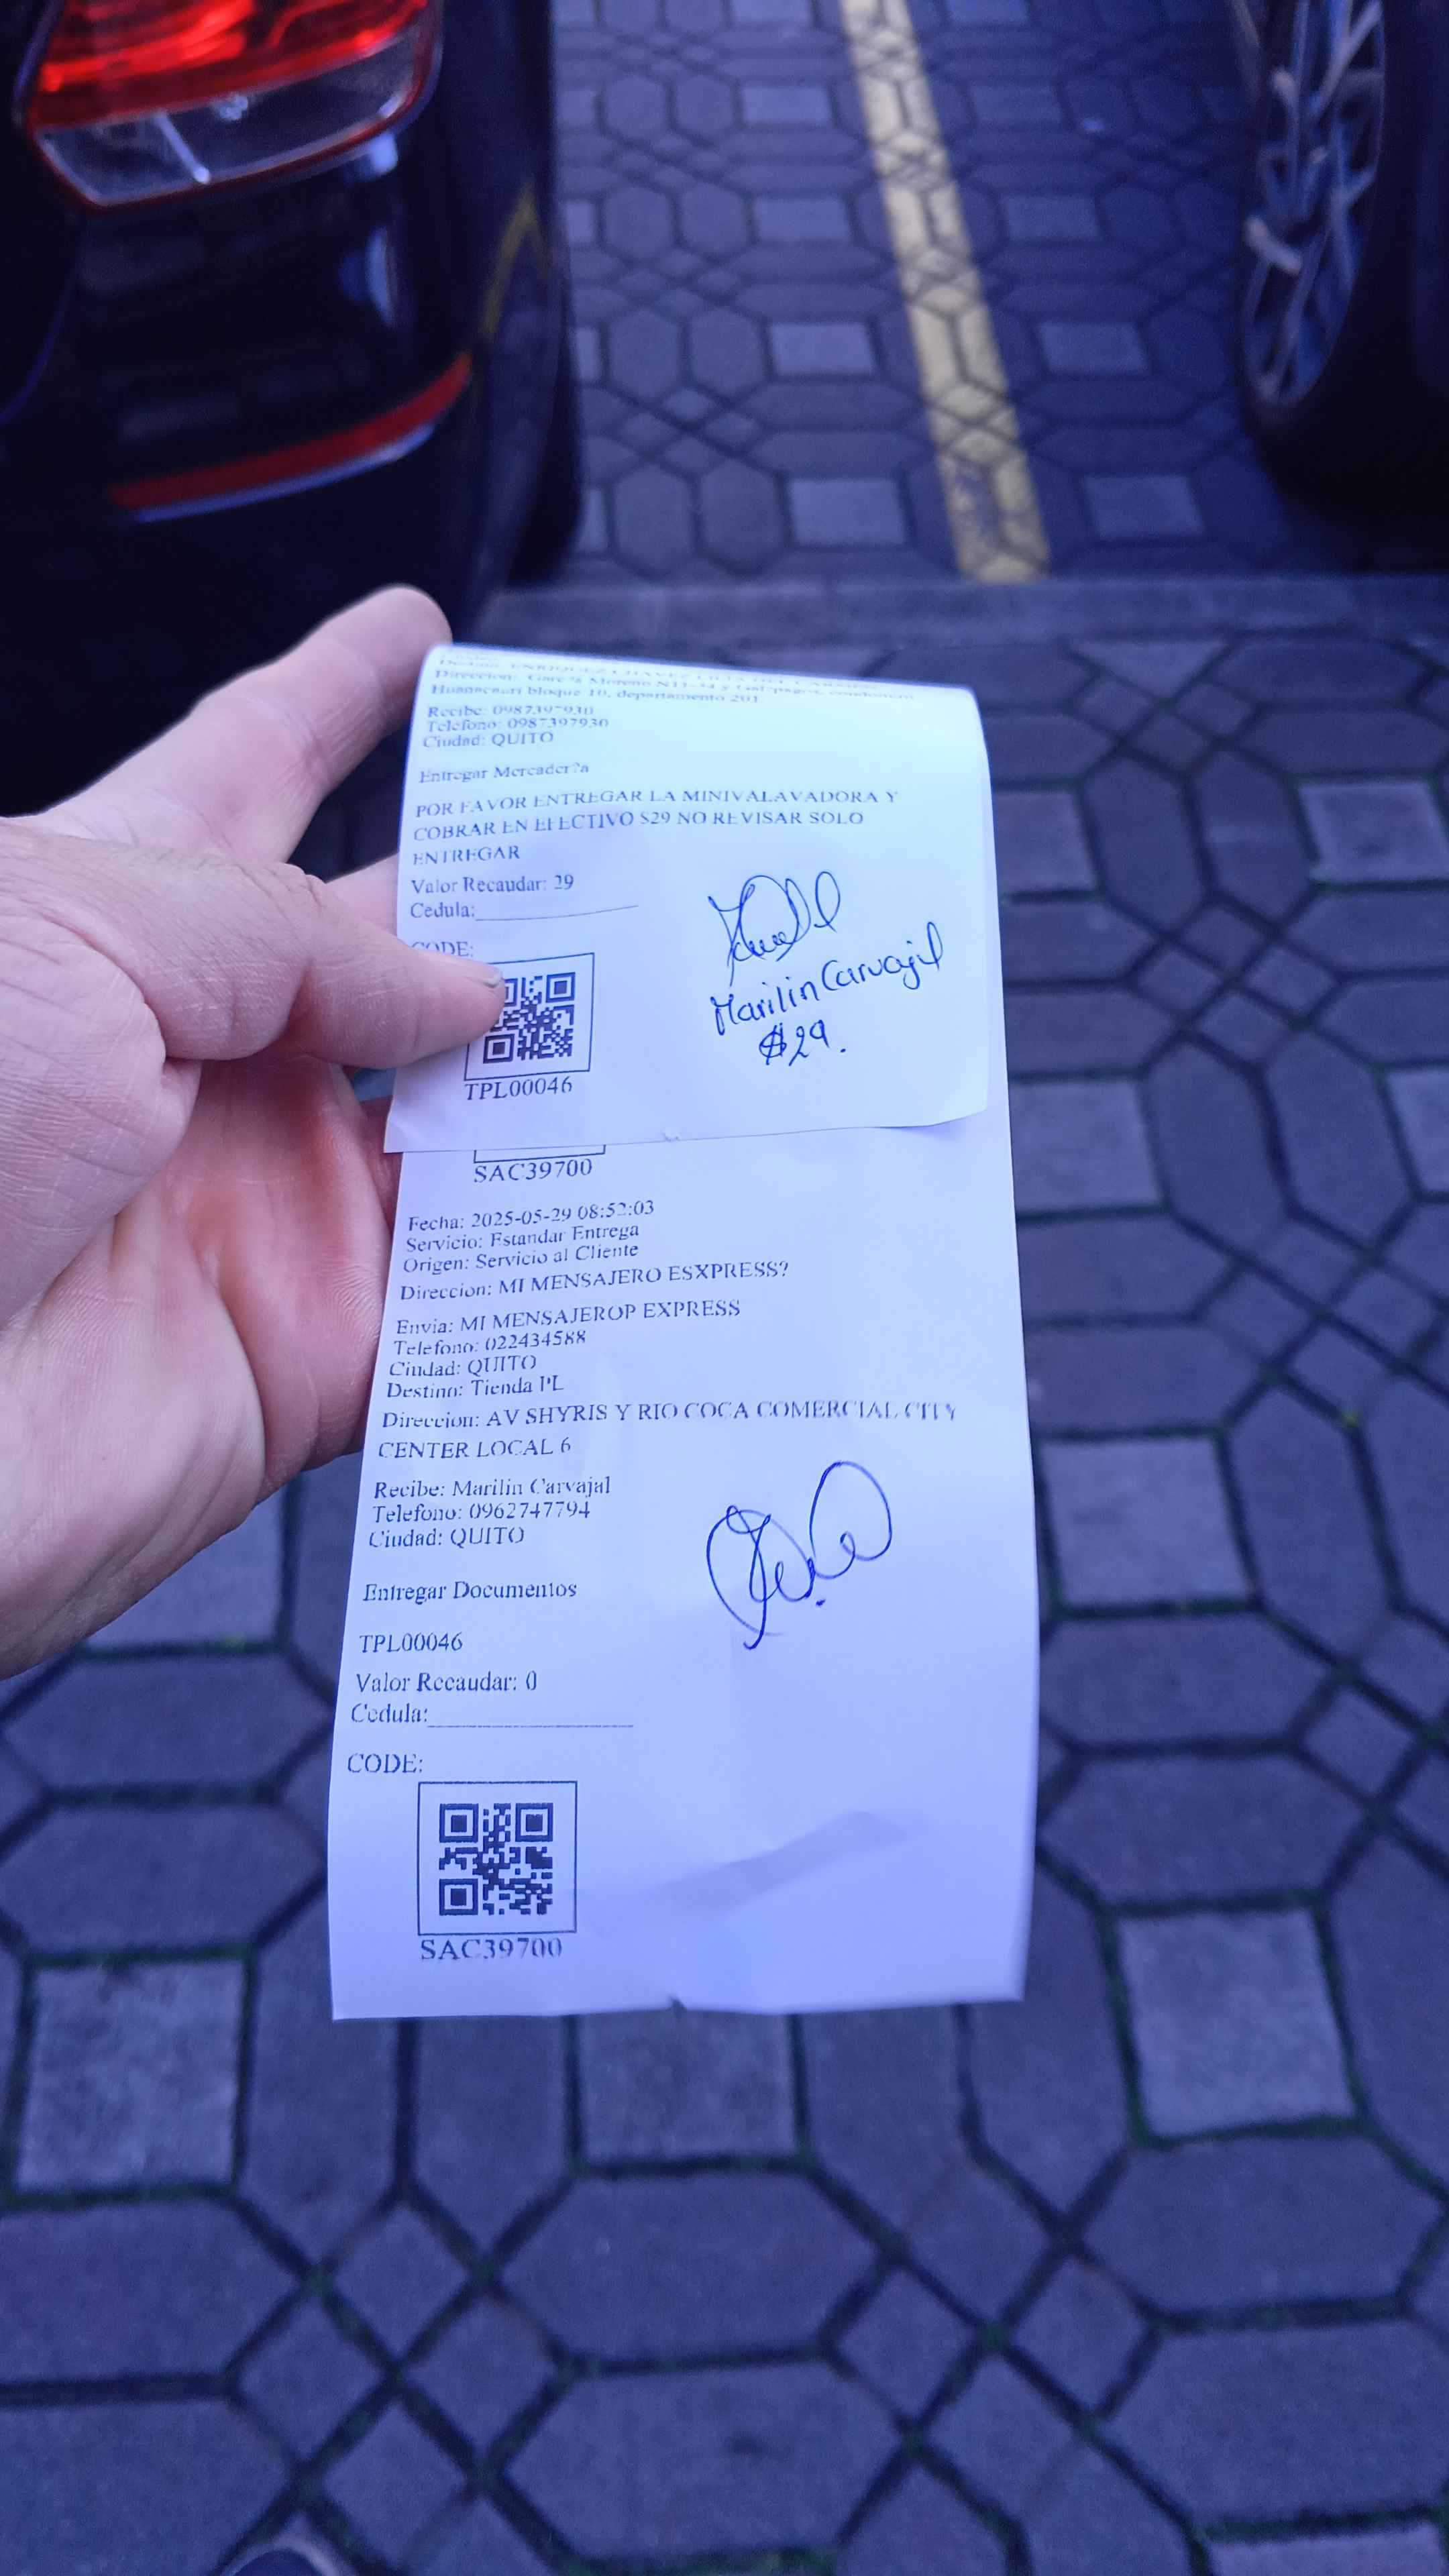 Direccion:
Huanacauri bloque 10, departamento 201
Recibe: 0987397930
Telefono: 0987397930
Ciudad: QUITO
Entregar Mercader?a
POR FAVOR ENTREGAR LA MINIVALAVADORA Y
COBRAR EN EFECTIVO $29 NO REVISAR SOLO
ENTREGAR
Valor Recaudar: 29
Cedula:
CODE:
Marilin Carvajil
$29.
TPL00046
SAC39700
Fecha: 2025-05-29 08:52:03
Servicio: Estandar Entrega
Origen: Servicio al Cliente
Direccion: MI MENSAJERO ESXPRESS?
Envia: MI MENSAJEROP EXPRESS
Telefono: 022434588
Ciudad: QUITO
Destino: Tienda PL
Direccion: AV SHYRIS Y RIO COCA COMERCIAL CITY
CENTER LOCAL 6
Recibe: Marilin Carvajal
Telefono: 0962747794
Ciudad: QUITO
Entregar Documentos
TPL00046
Valor Recaudar: 0
Cedula:
CODE:
SAC39700